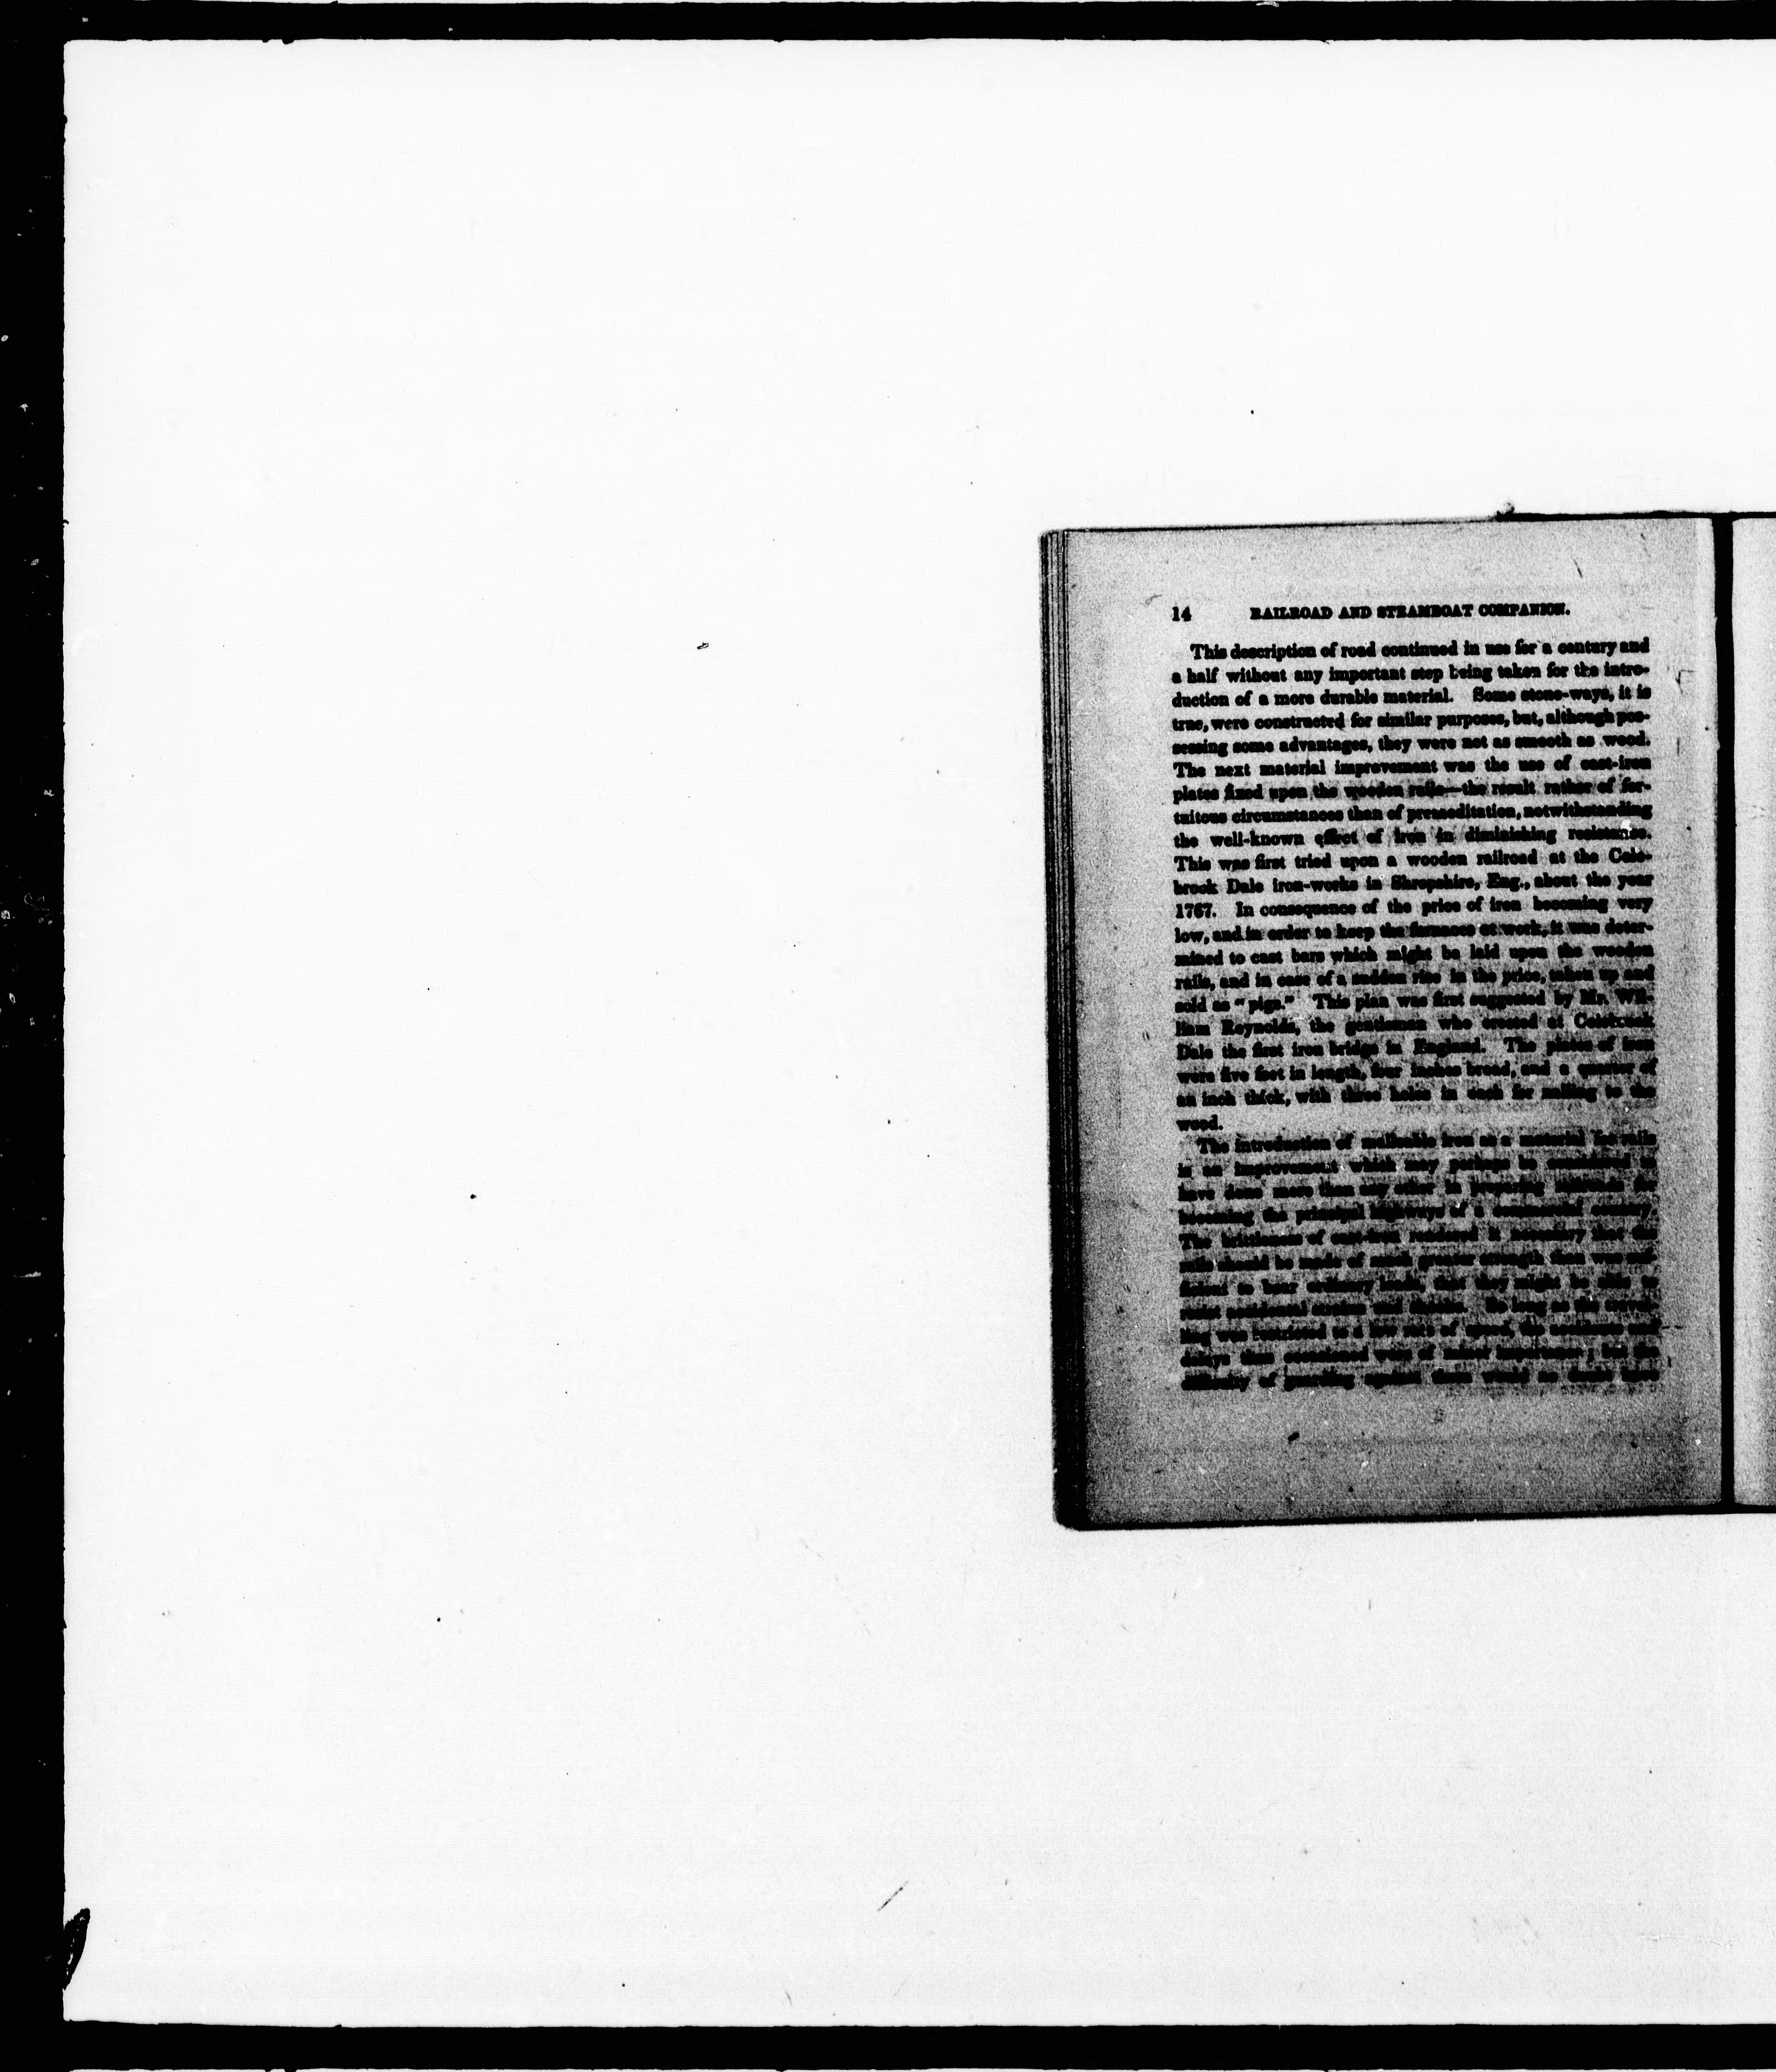 14 RAILROAD AND STEAMBOAT COMPANION.
This description of road continued in use for a century and
a half without any important step being taken for the intro-
duction of a more durable material. Some stone-ways, it is
true, were constructed for similar purposes, but, although pos-
sessing some advantages, they were not as smooth as wood.
The next material improvement was the use of cast-iron
plates fixed upon the wooden rails—the result rather of for-
tuitous circumstances than of premeditation, notwithstanding
the well-known effect of iron in diminishing resistance.
This was first tried upon a wooden railroad at the Cole-
brook Dale iron-works in Shropshire, Eng., about the year
1767. In consequence of the price of iron becoming very
low, and in order to keep the furnaces at work, it was deter-
mined to cast bars which might be laid upon the wooden
rails, and in case of a sudden rise in the price, taken up and
sold as "pigs." This plan was first suggested by Mr. Wil-
liam Reynolds, the gentleman who erected at Colebrook
Dale the first iron bridge in England. The plates of iron
were five feet in length, four inches broad, and a quarter of
an inch thick, with three holes in each for nailing to the
wood.
The introduction of malleable iron as a material for rails
is an improvement which may perhaps be considered to
have done more than any other in preparing railroads for
becoming the principal highways of a commercial country.
The brittleness of cast-iron rendered it necessary that the
rails should be made of much greater strength than was suf-
to bear ordinary loads, that they might be able to
accidental So long as the travel-
ling was restricted to a low rate of speed, the and
delays thus occasioned were of minor importance; but the
difficulty of guarding against them would no doubt have